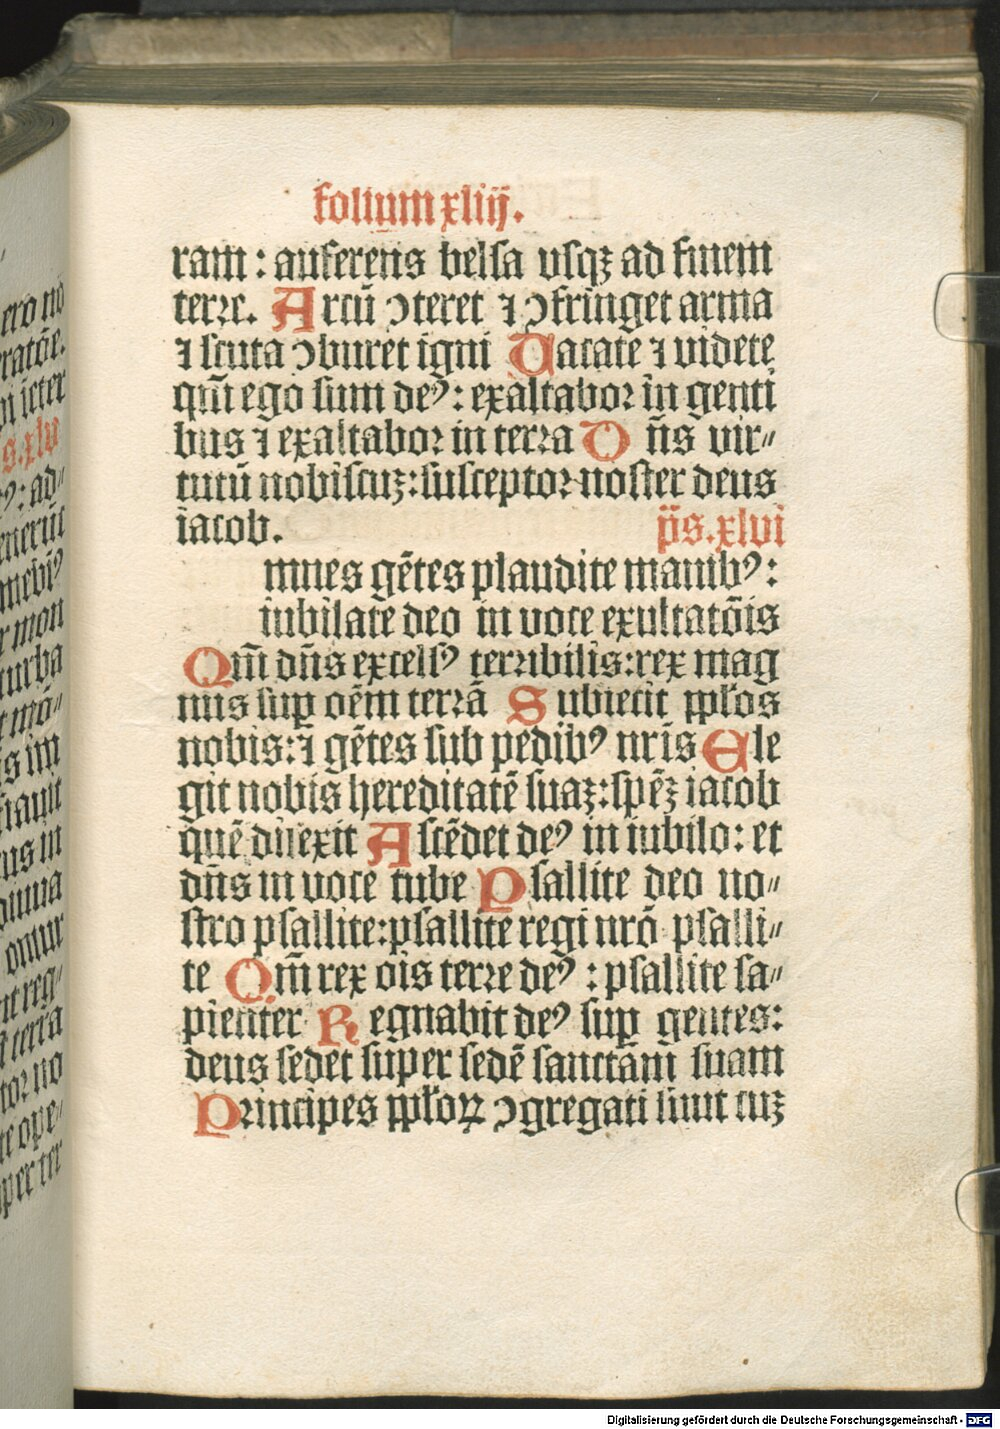 folium xliij.
ram: auferens bella vsqȝ ad finem
terre. Arcū ↄteret ⁊ ↄfringet arma
⁊ scuta ↄburet igni Uacate ⁊ videte
qm̄ ego sum deꝰ: exaltabor in genti
bus ⁊ exaltabor in terra Dn̄s vir⸗
tutū nobiscuȝ: susceptor noster deus
iacob. p̄s. xlvi
mnes gētes plaudite manibꝰ:
iubilate deo in voce exultatōis
Qm̄ dn̄s excelsꝰ terribilis: rex mag
nus suꝑ oēm terrā Subiecit pp̄los
nobis: ⁊ gētes sub pedibꝰ nr̄is Ele
git nobis hereditatē suaȝ: spēȝ iacob
quē dilexit Ascēdet deꝰ in iubilo: et
dn̄s in voce tube Psallite deo no⸗
stro psallite: psallite regi nrō psalli⸗
te Qm̄ rex ois terre deꝰ: psallite sa⸗
pienter Regnabit deꝰ suꝑ gentes:
deus sedet super sedē sanctam suam
Principes pp̄loꝝ ↄgregati sunt cuȝ
ero nō
ratōe.
s. xlv
ꝰ: ad⸗
mebiꝰ
r mon
turba
t mō⸗
is im
us in
omnr
t reg⸗
terra
tor no
te ope⸗
per ter
Digitalisierung gefördert durch die Deutsche Forschungsgemeinschaft - DFG